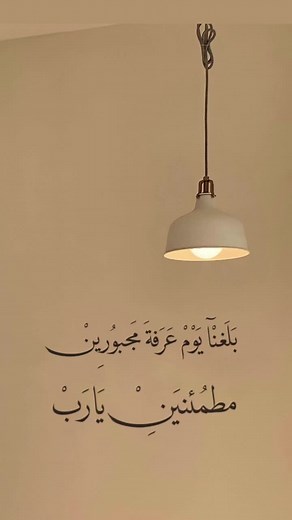 بَلَغنْآ يَوْمْ عَرَفةَ مَجبُورِينْ
مطمُئنيَنِْ يَارَبْ